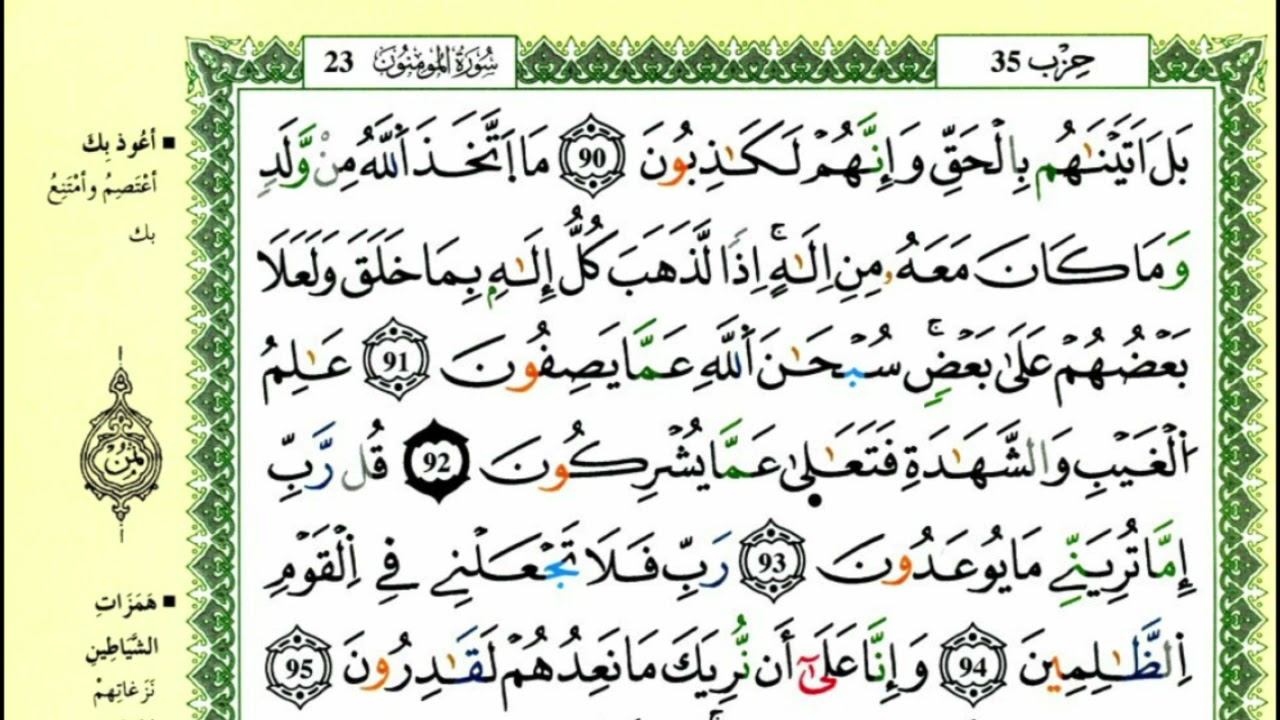 حِزْب 35
سُورَةُ الْمُومِنُونَ 23
بَلَ اَتَيْنَٰهُم بِالْحَقِّ وَإِنَّهُمْ لَكَٰذِبُونَ 90 مَا اَتَّخَذَ اَللَّهُ مِنْ وَّلَدٖ
وَمَا كَانَ مَعَهُۥ مِنِ اِلَٰهٍۖ اِذاٗ لَّذَهَبَ كُلُّ إِلَٰهِۢ بِمَا خَلَقَ وَلَعَلَا
بَعْضُهُمْ عَلَىٰ بَعْضٖۖ سُبْحَٰنَ اَللَّهِ عَمَّا يَصِفُونَ 91 عَٰلِمُ
اُلْغَيْبِ وَالشَّهَٰدَةِ فَتَعَٰلَىٰ عَمَّا يُشْرِكُونَ 92 قُل رَّبِّ
إِمَّا تُرِيَنِّے مَا يُوعَدُونَ 93 رَبِّ فَلَا تَجْعَلْنِے فِے اِلْقَوْمِ
اِلظَّٰلِمِينَ 94 وَإِنَّا عَلَىٰٓ أَن نُّرِيَكَ مَا نَعِدُهُمْ لَقَٰدِرُونَ 95
■ أعُوذ بِكَ
أعْتَصِمُ وأمْتَنِعُ
بك
ثمن
■ هَمَزَاتِ
الشَّيَاطِينِ
نَزَغاتِهِمْ